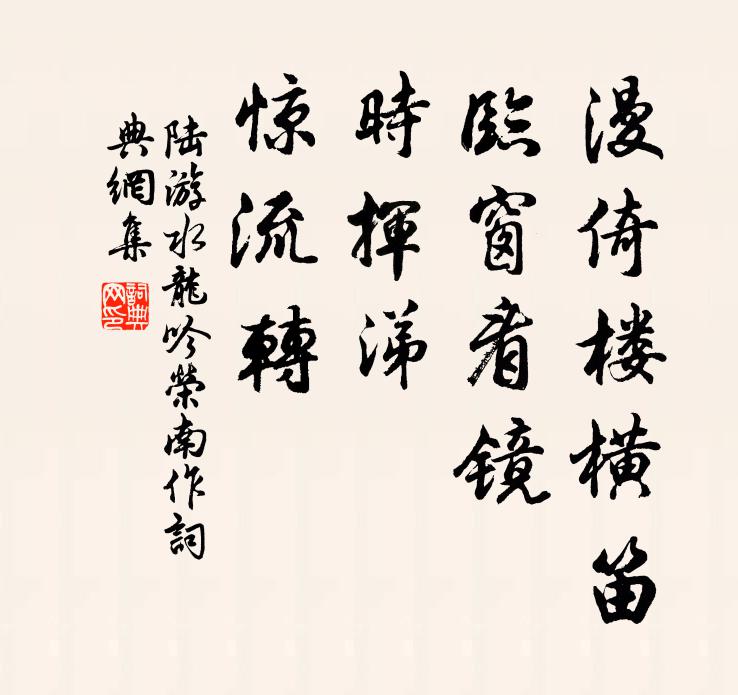 漫倚楼橫笛
臨窗看镜
時揮涕
惊流轉
陆游水龍吟榮南作詞
典網集
詞典
网印